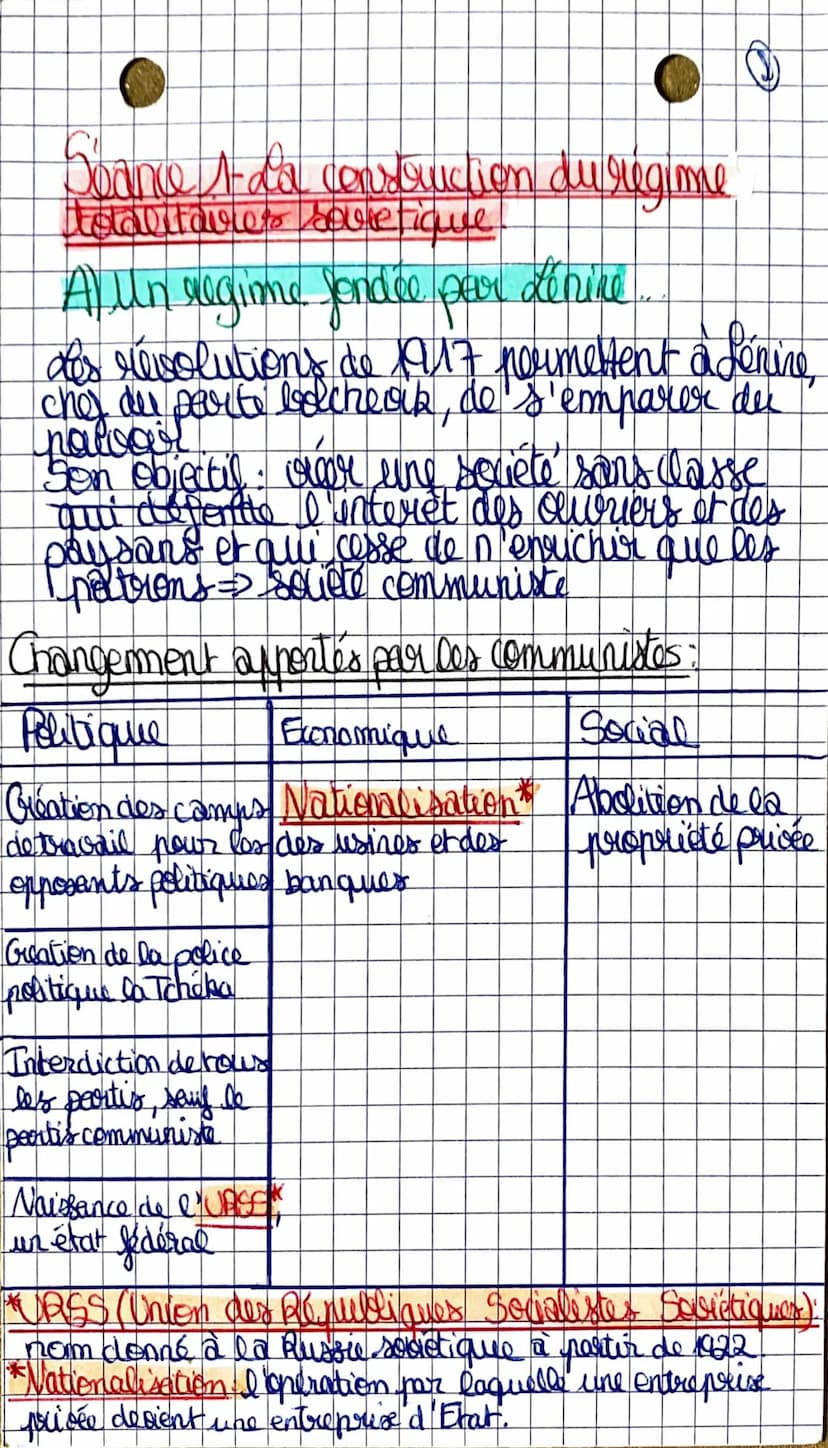 1
Séance 1 - La construction du régime
totalitaires soviétique.
A) Un régime fondée par Lénine...
Les révolutions de 1917 permettent à Lénine,
chef du parti bolchevik, de s'emparer du
pouvoir.
Son objectif : créer une société sans classe
qui défende l'interêt des ouvriers et des
paysans et qui cesse de n'enrichir que les
patrons => société communiste
Changement apportés par les communistes :
Politique
Economique
Social
Création des camps
de travail pour les
opposants politiques
Nationalisation*
des usines et des
banques
Abolition de la
propriété privée
Création de la police
politique la Tchéka
Interdiction de tous
les partis, sauf le
partis communiste
Naissance de l'URSS*,
un état fédéral
*URSS (Union des Républiques Socialistes Soviétiques):
nom donné à la Russie soviétique à partir de 1922.
*Nationalisation : l'opération par laquelle une entreprise
privée devient une entreprise d'Etat.